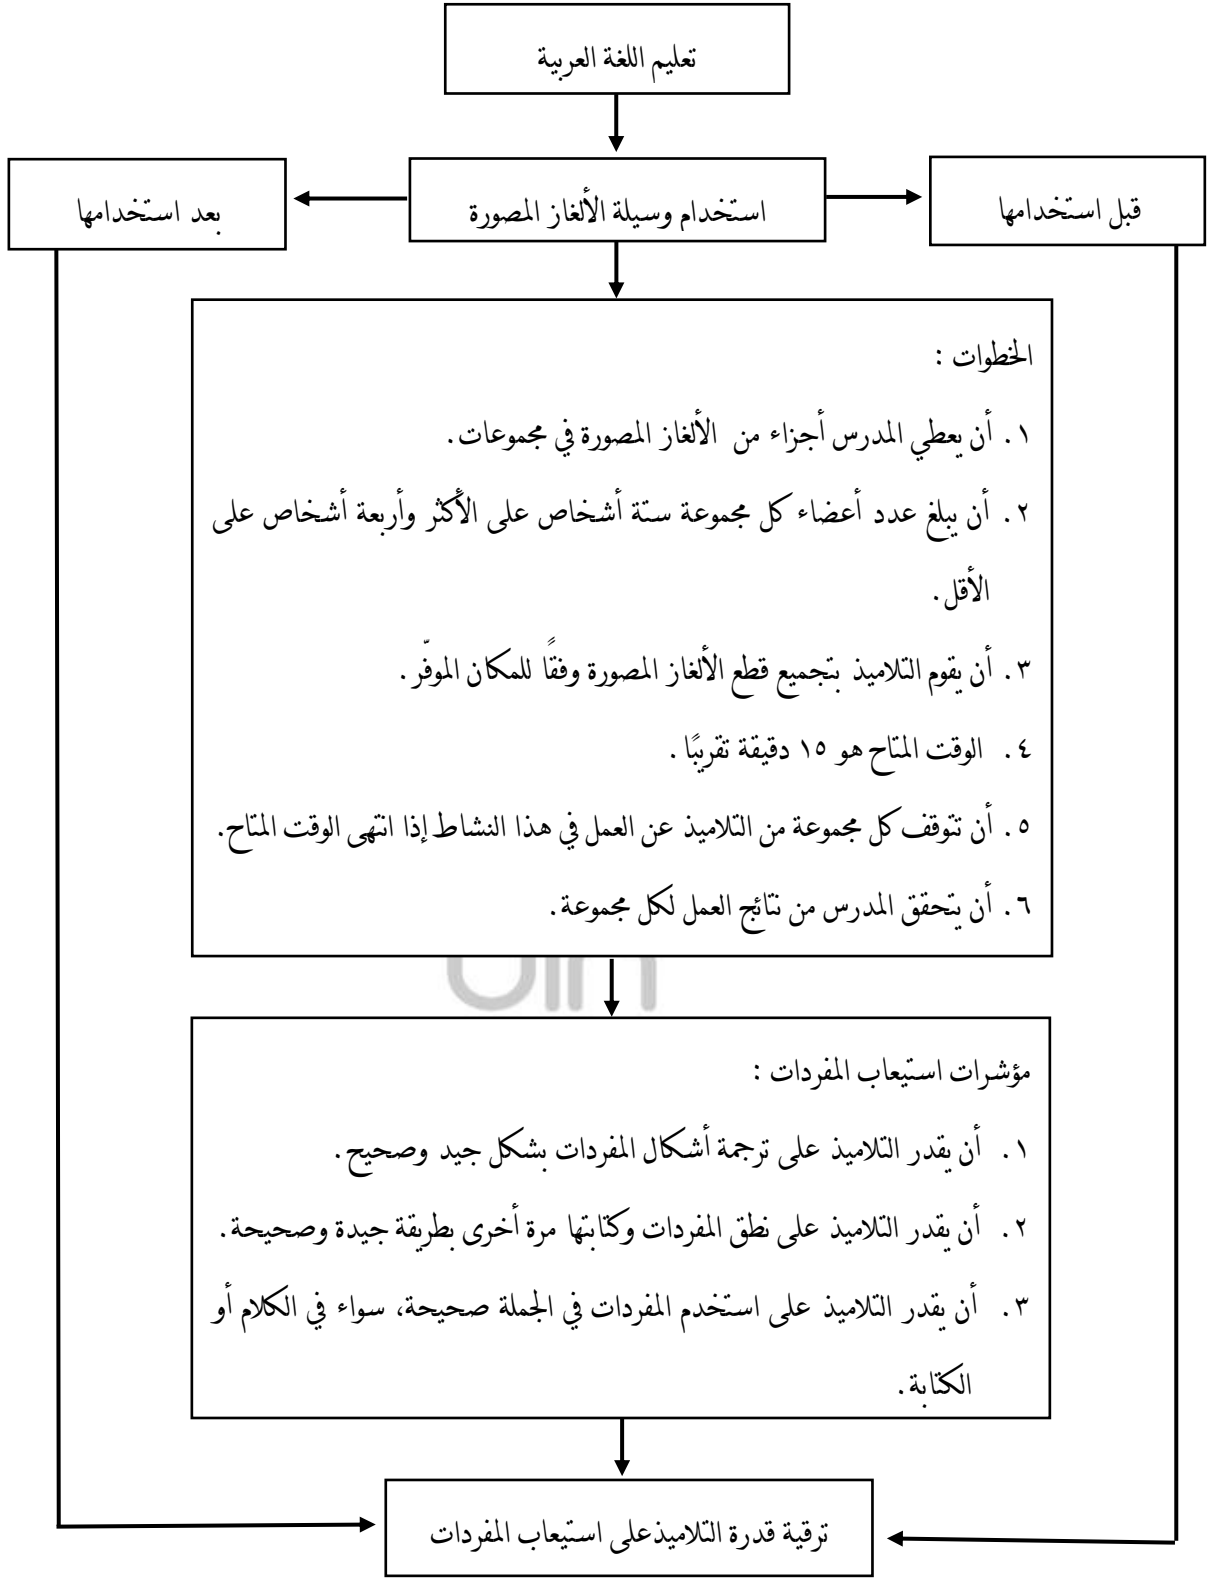 تعليم اللغة العربية
قبل استخدامها
استخدام وسيلة الألغاز المصورة
بعد استخدامها
الخطوات :
١. أن يعطي المدرس أجزاء من الألغاز المصورة في مجموعات.
٢. أن يبلغ عدد أعضاء كل مجموعة ستة أشخاص على الأكثر وأربعة أشخاص على
الأقل.
٣. أن يقوم التلاميذ بتجميع قطع الألغاز المصورة وفقًا للمكان الموفّر.
٤. الوقت المتاح هو ١٥ دقيقة تقريبًا.
٥. أن تتوقف كل مجموعة من التلاميذ عن العمل في هذا النشاط إذا انتهى الوقت المتاح.
٦. أن يتحقق المدرس من نتائج العمل لكل مجموعة.
مؤشرات استيعاب المفردات :
١. أن يقدر التلاميذ على ترجمة أشكال المفردات بشكل جيد وصحيح.
٢. أن يقدر التلاميذ على نطق المفردات وكتابتها مرة أخرى بطريقة جيدة وصحيحة.
٣. أن يقدر التلاميذ على استخدم المفردات في الجملة صحيحة، سواء في الكلام أو
الكتابة.
ترقية قدرة التلاميذ على استيعاب المفردات